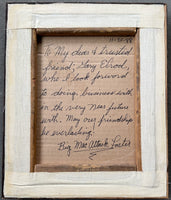 11-20-88
To My dear & trusted
friend; Gary Elrod,
who I look forward
to doing business with
in the very near future
with. May our friendship
be everlasting!
Big Mac Attack